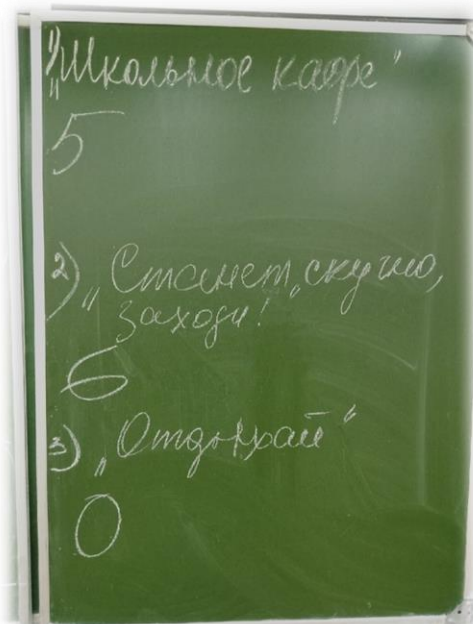 1) „Школьное кафе“
5
2) „Станет скучно,
заходи!“
6
3) „Отдыхай“
0